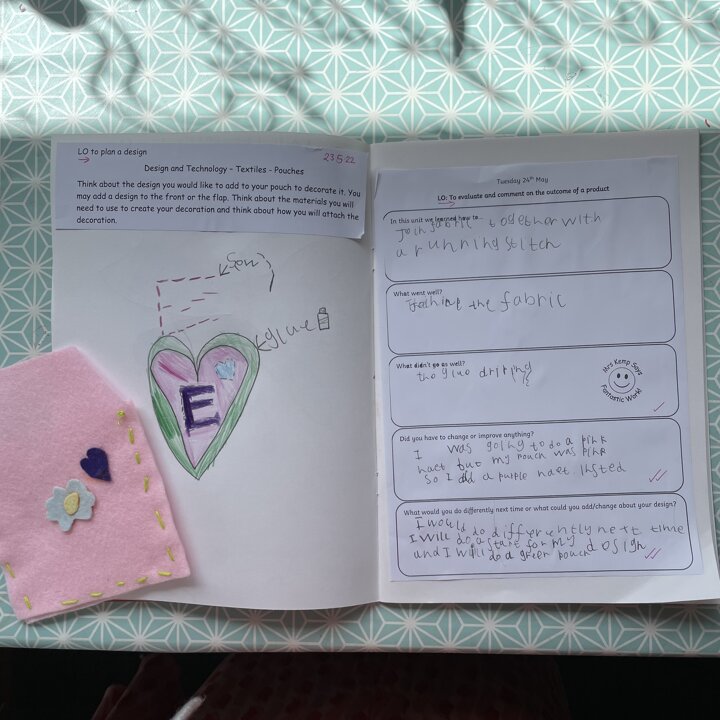 LO to plan a design
23.5.22
Design and Technology – Textiles - Pouches
Think about the design you would like to add to your pouch to decorate it. You
may add a design to the front or the flap. Think about the materials you will
need to use to create your decoration and think about how you will attach the
decoration.
glue
E
Tuesday 24th May
LO: To evaluate and comment on the outcome of a product
In this unit we learned how to...
Join fabric together with
a running stitch
What went well?
the fabric
What didn't go as well?
the glue
Mrs Kemp Says
Fantastic Work!
Did you have to change or improve anything?
I was going to do a pink
haet but my pouch was pink
so I did a purple haet insted
What would you do differently next time or what could you add/change about your design?
I would do differently next time
I will do a for my
and I will do a green pouch